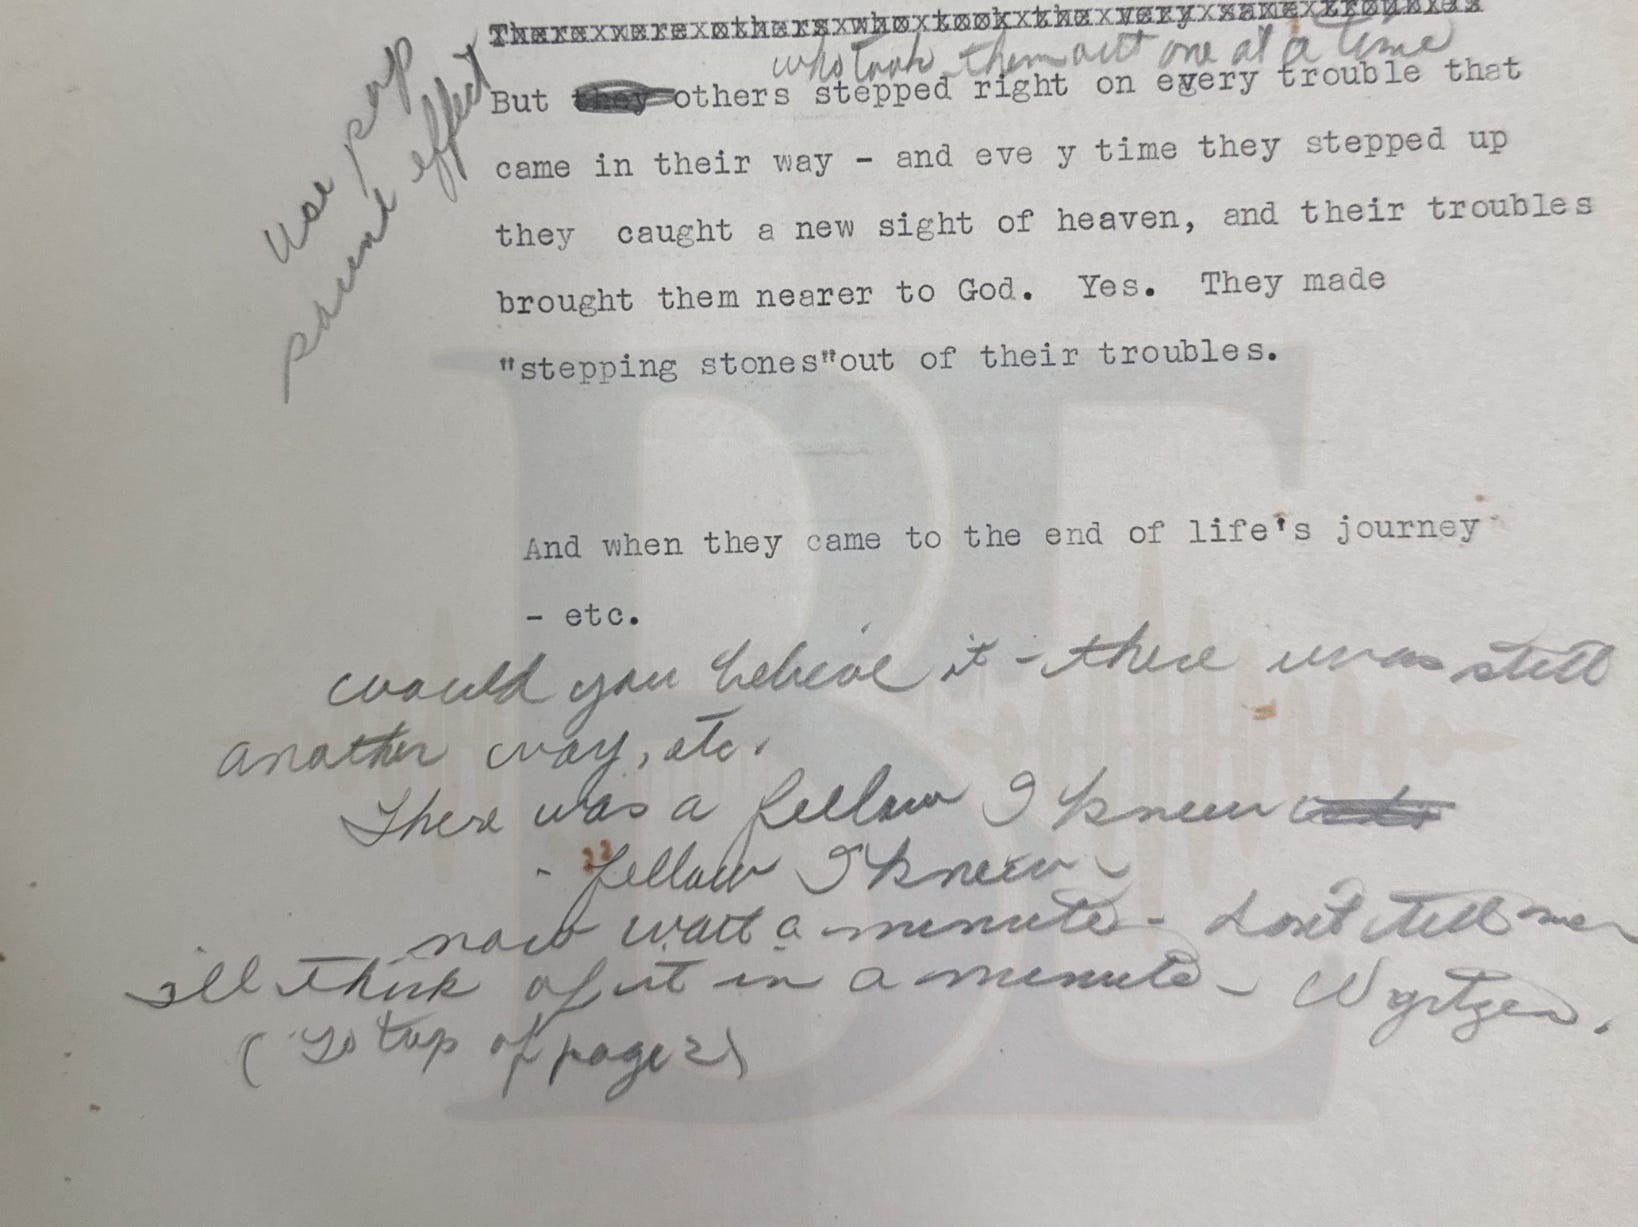 There were others who took the very same troubles
who took them out one at a time
Use pop
sound effect
But they others stepped right on every trouble that
came in their way - and eve y time they stepped up
they caught a new sight of heaven, and their troubles
brought them nearer to God. Yes. They made
"stepping stones"out of their troubles.
And when they came to the end of life's journey
- etc.
would you believe it - there was still
another way, etc.
There was a fellow I knew
- fellow I knew -
now wait a minute - don't tell me
I'll think of it in a minute - Wyrtzen.
(To top of page 2)
BE